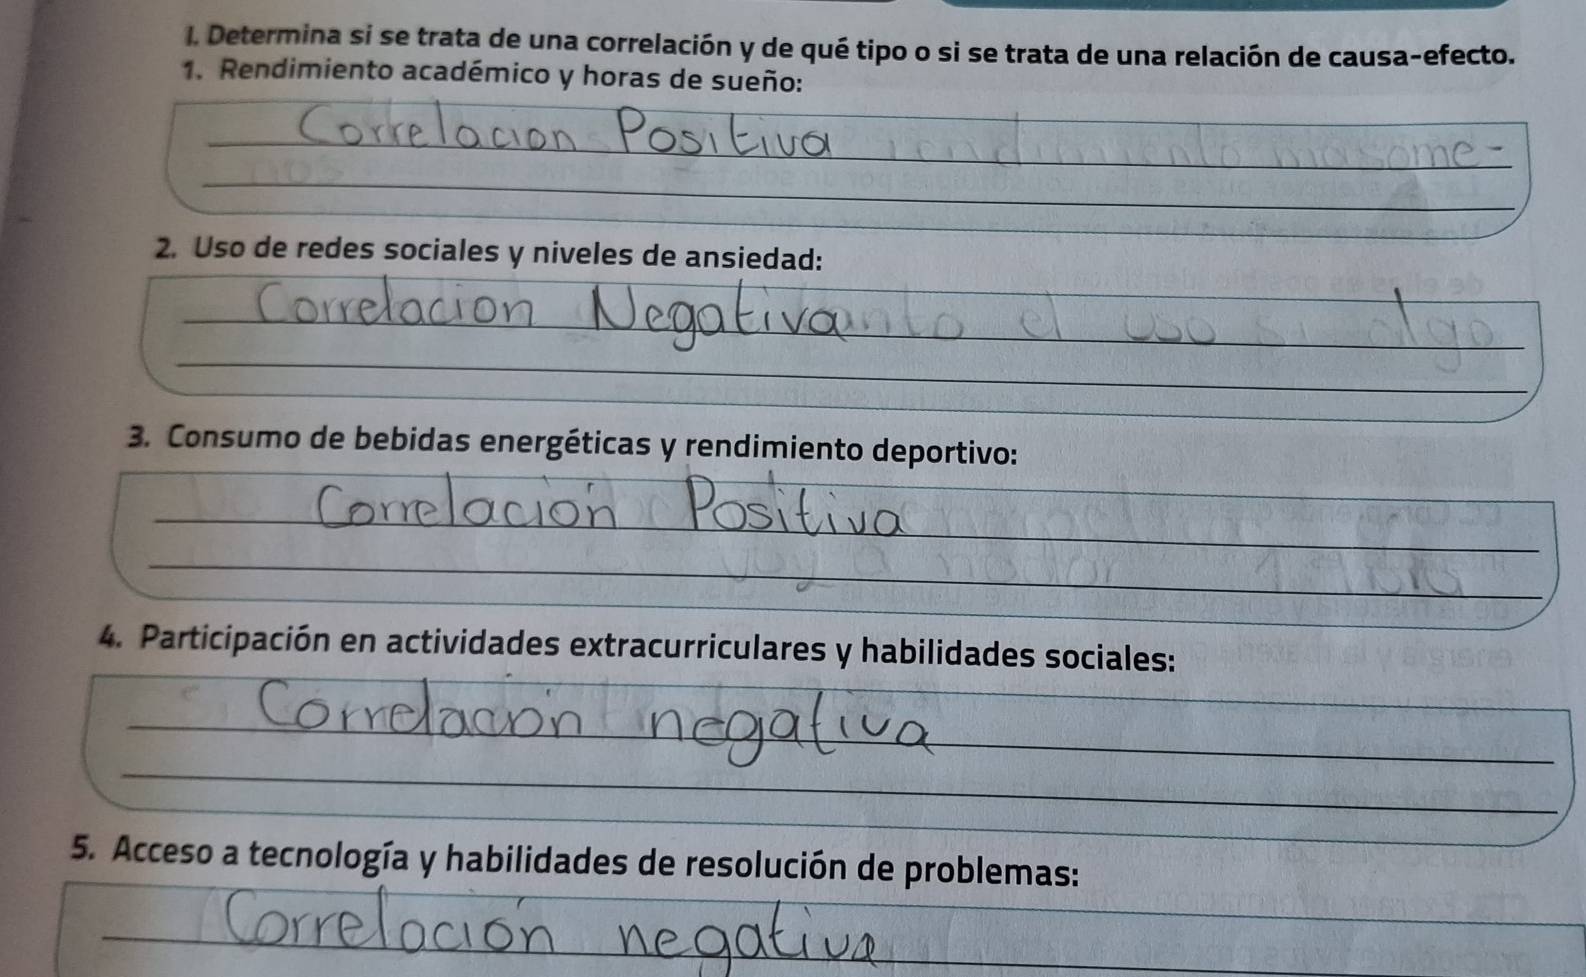 I. Determina si se trata de una correlación y de qué tipo o si se trata de una relación de causa-efecto.
1. Rendimiento académico y horas de sueño:
Correlacion Positiva
2. Uso de redes sociales y niveles de ansiedad:
Correlacion Negativa
3. Consumo de bebidas energéticas y rendimiento deportivo:
Correlación Positiva
4. Participación en actividades extracurriculares y habilidades sociales:
Correlación negativa
5. Acceso a tecnología y habilidades de resolución de problemas:
Correlación negativa